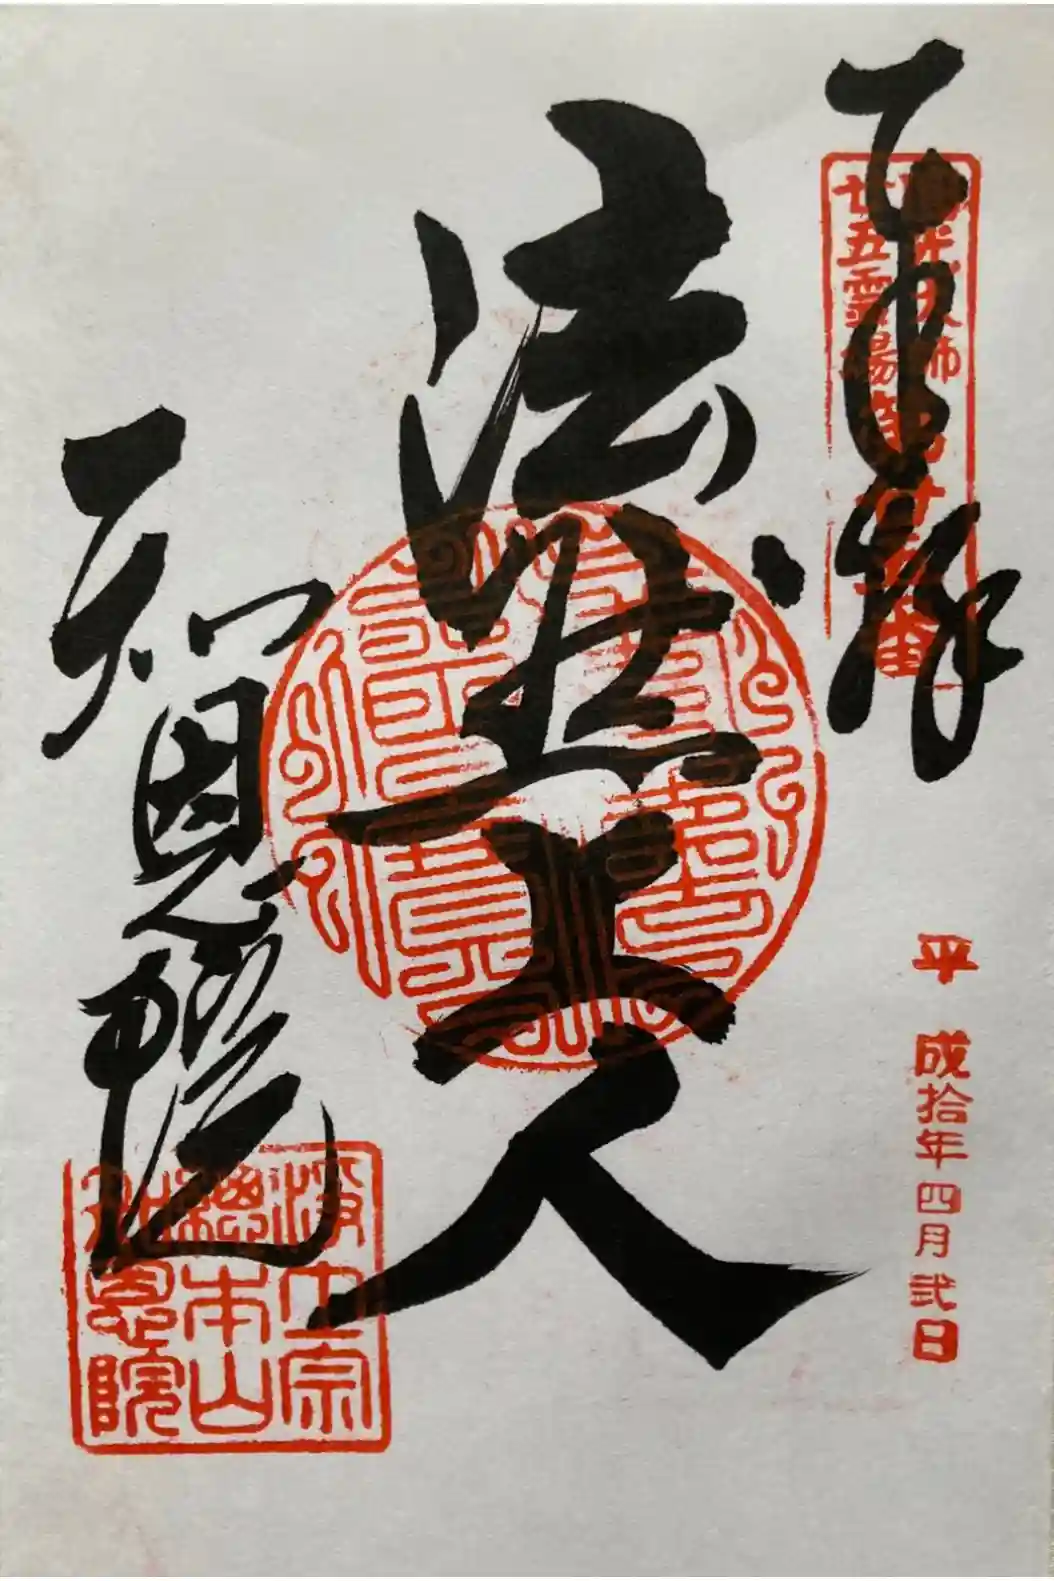 奉拝
圓光大師
廿五霊場第廿五番
平成拾年四月弐日
法然上人
知恩院
浄土宗
總本山
知恩院